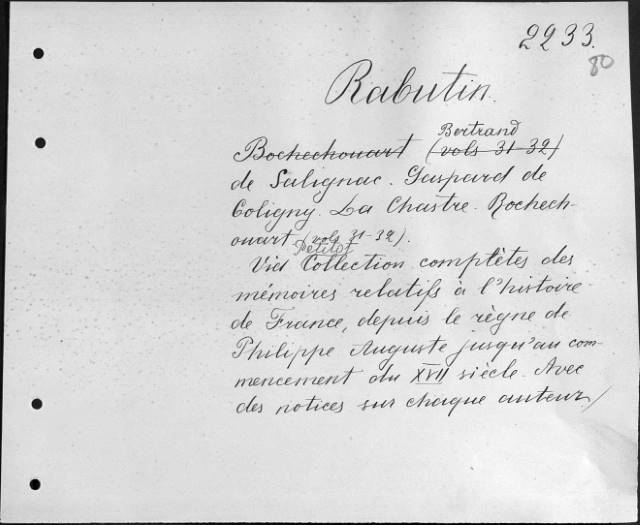 2233.
80
Rabutin.
Bertrand
Bochechouart (vols 31-32)
de Salignac. Gaspard de
Coligny. La Chastre. Rochech-
ouart (vols 31-32).
Petitot
Vid Collection complètes des
mémoires relatifs à l'histoire
de France, depuis le règne de
Philippe Auguste jusqu'au com-
mencement du XVII siècle. Avec
des notices sur chaque auteur/